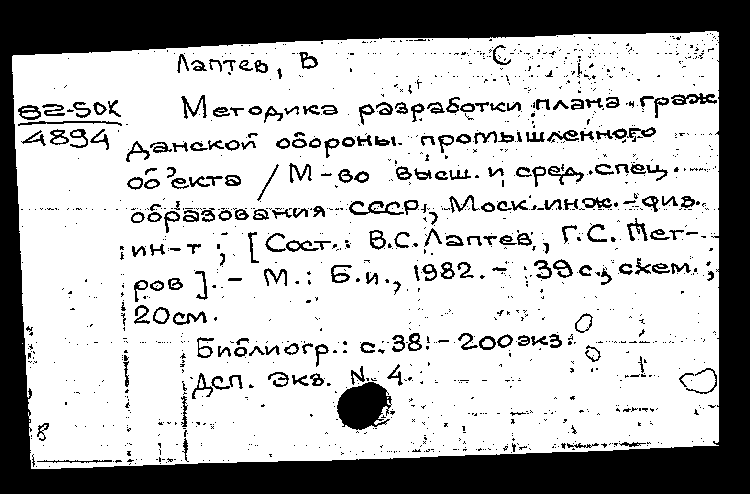 Лаптев, В С
82-5DK
4894
Методика разработки плана граж
данской обороны промышленного
объекта / М-во высш. и сред. спец.
образования СССР, Моск. инж.-физ.
ин-т ; [Сост.: В.С. Лаптев, Г.С. Пет-
ров]. - М.: Б.и., 1982. - 39 с., схем. ;
20см.
Библиогр.: с. 38. - 200 экз.
ДСП. Экз. N 4.
8